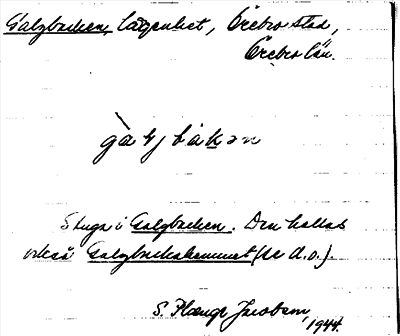 Galgbacken, lägenhet, Örebro stad,
Örebro län.
gàlj bàkən
Stuga i Galgbacken. Den kallas
också Galgbackahemmet (se d.o.).
S. Hænge Jacobsen,
1944.